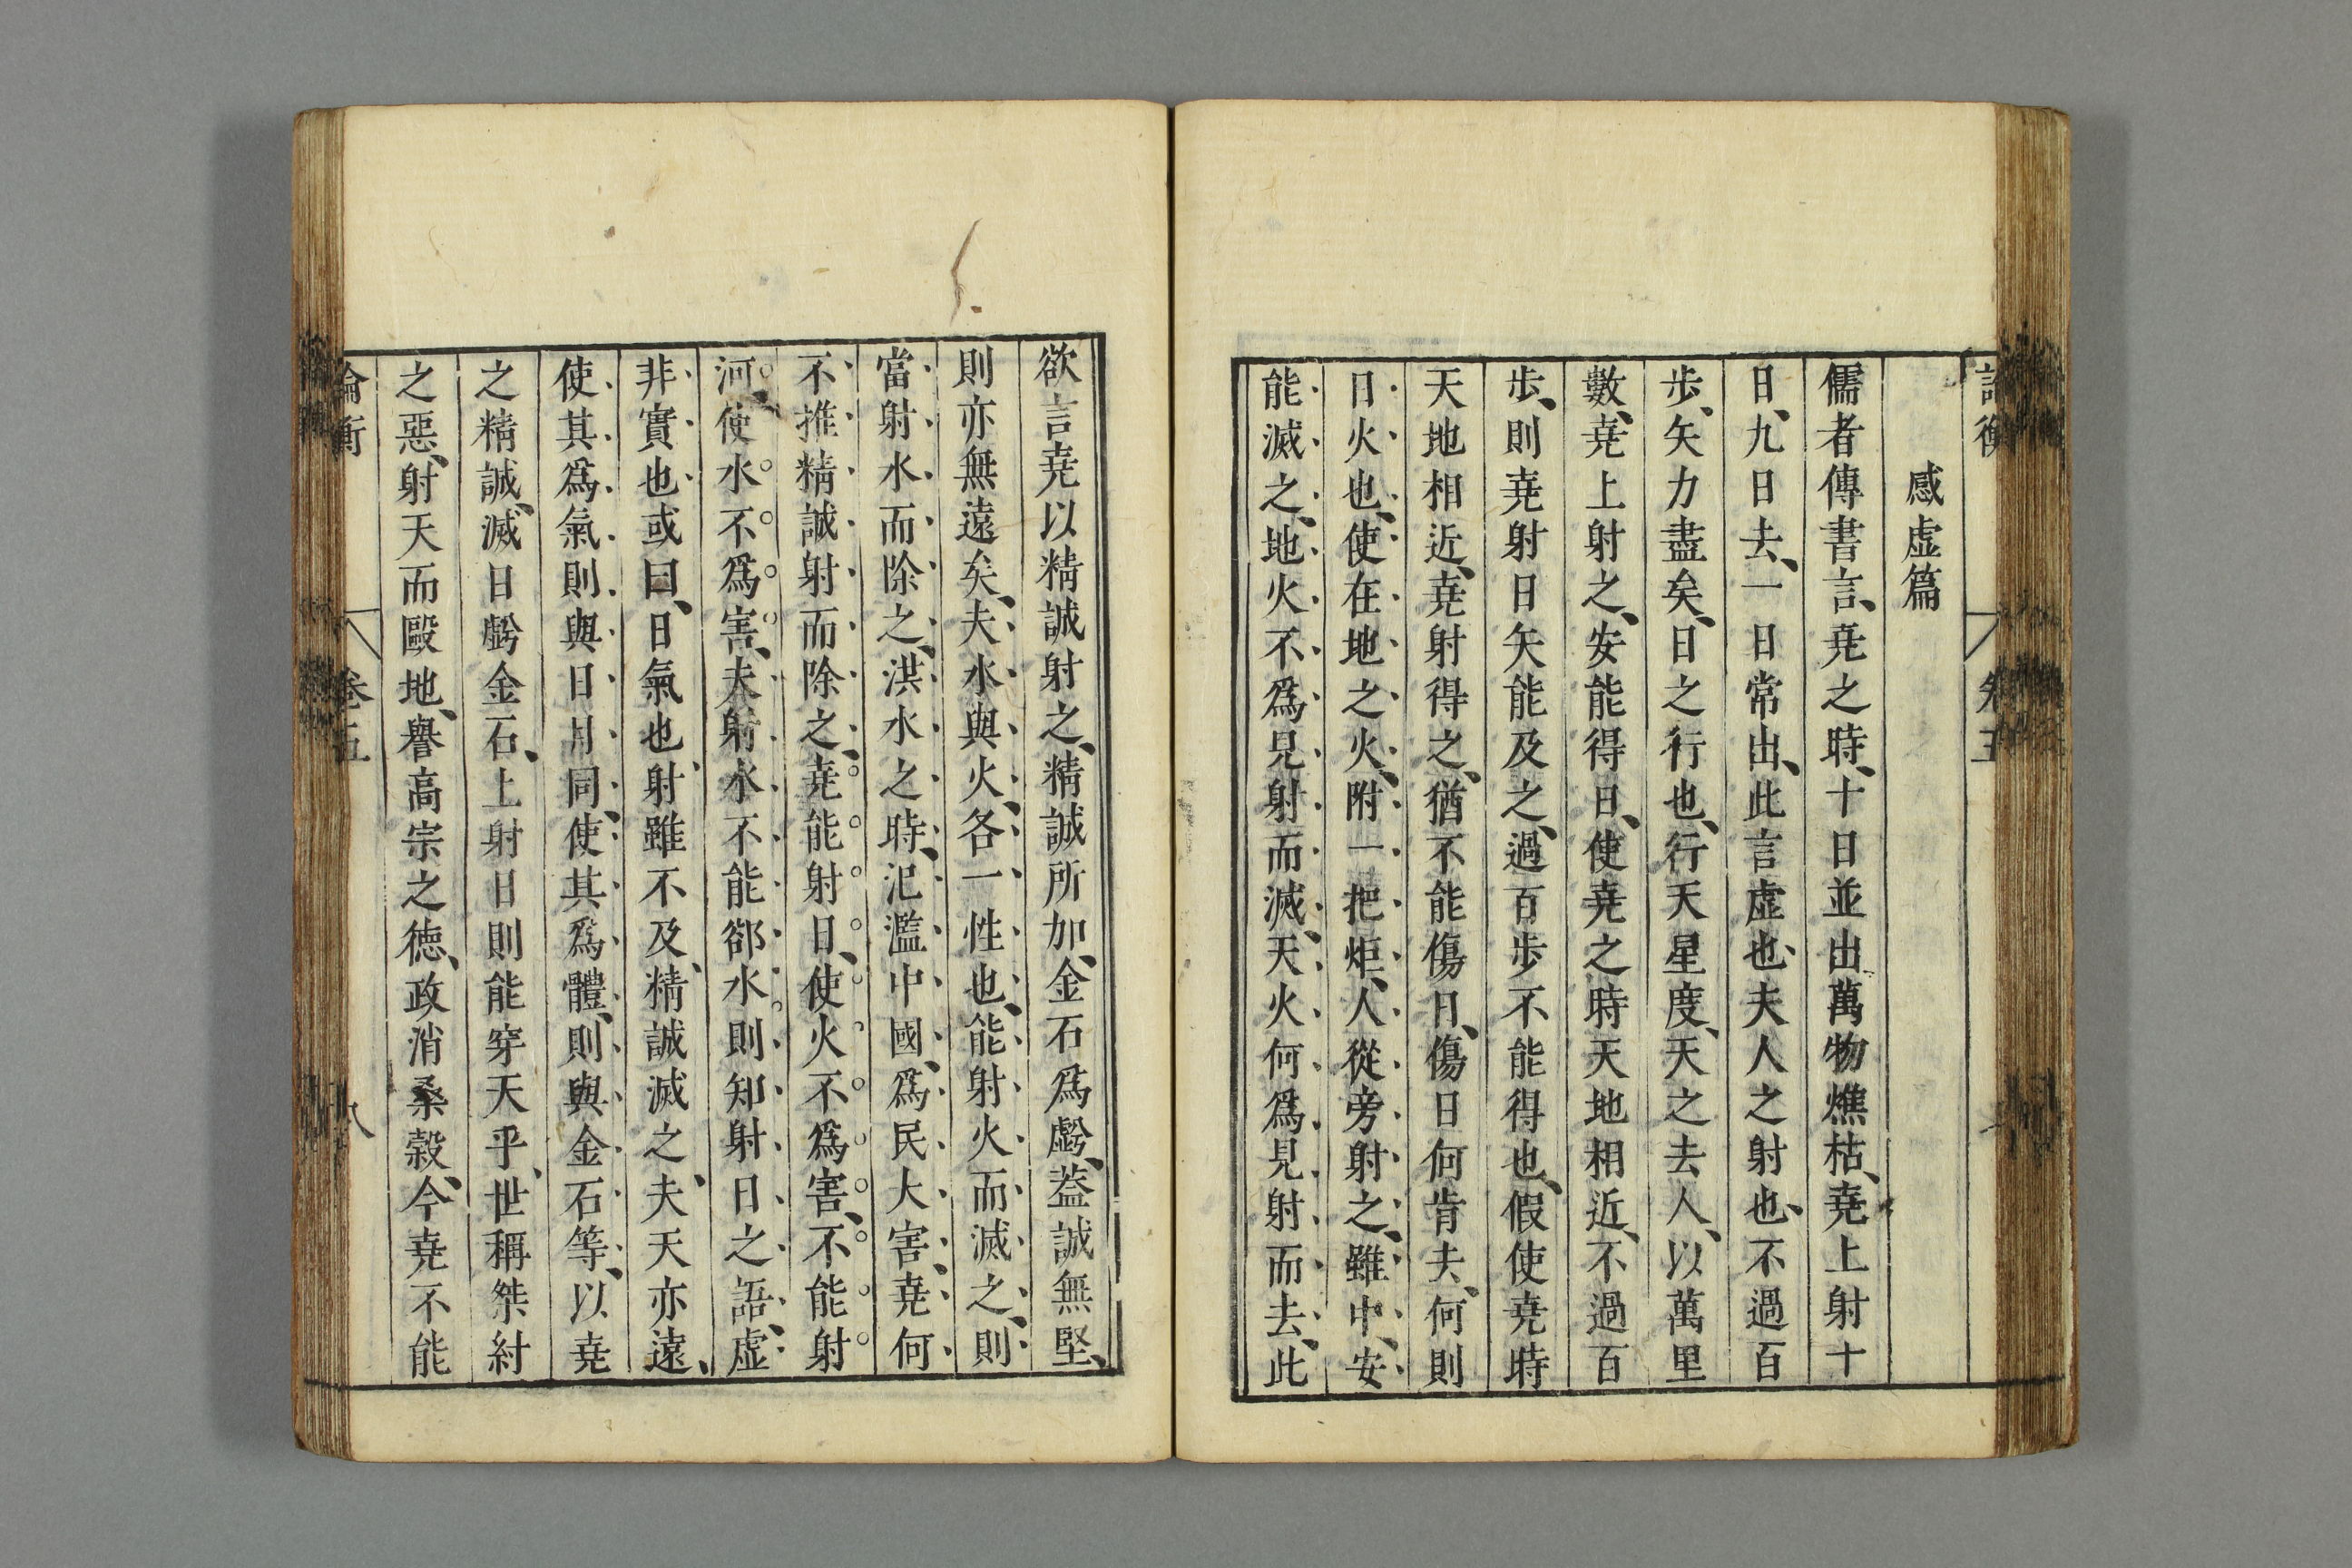 感虛篇
儒者傳書言、堯之時、十日並出萬物燋枯、堯上射十
日、九日去、一日常出、此言虛也、夫人之射也、不過百
步、矢力盡矣、日之行也、行天星度、天之去人、以萬里
數、堯上射之、安能得日、使堯之時天地相近、不過百
步、則堯射日矢能及之、過百步不能得也、假使堯時
天地相近、堯射得之、猶不能傷日、傷日何肯去、何則
日火也、使在地之火、附一把炬、人從旁射之、雖中、安
能滅之、地火不爲見射而滅、天火何爲見射而去、此
欲言堯以精誠射之、精誠所加、金石爲虧、葢誠無堅、
則亦無遠矣、夫水與火、各一性也、能射火而滅之、則
當射水而除之、洪水之時、氾濫中國、爲民大害、堯何
不推精誠射而除之、堯能射日、使火不爲害、不能射
河、使水不爲害、夫射水不能郤水、則知射日之語、虛
非實也、或曰、日氣也、射雖不及、精誠滅之、夫天亦遠、
使其爲氣則與日月同、使其爲體、則與金石等、以堯
之精誠、滅日虧金石、上射日則能穿天乎、世稱桀紂
之惡、射天而毆地、譽高宗之德、政消桑榖、今堯不能
論衡
卷五
八